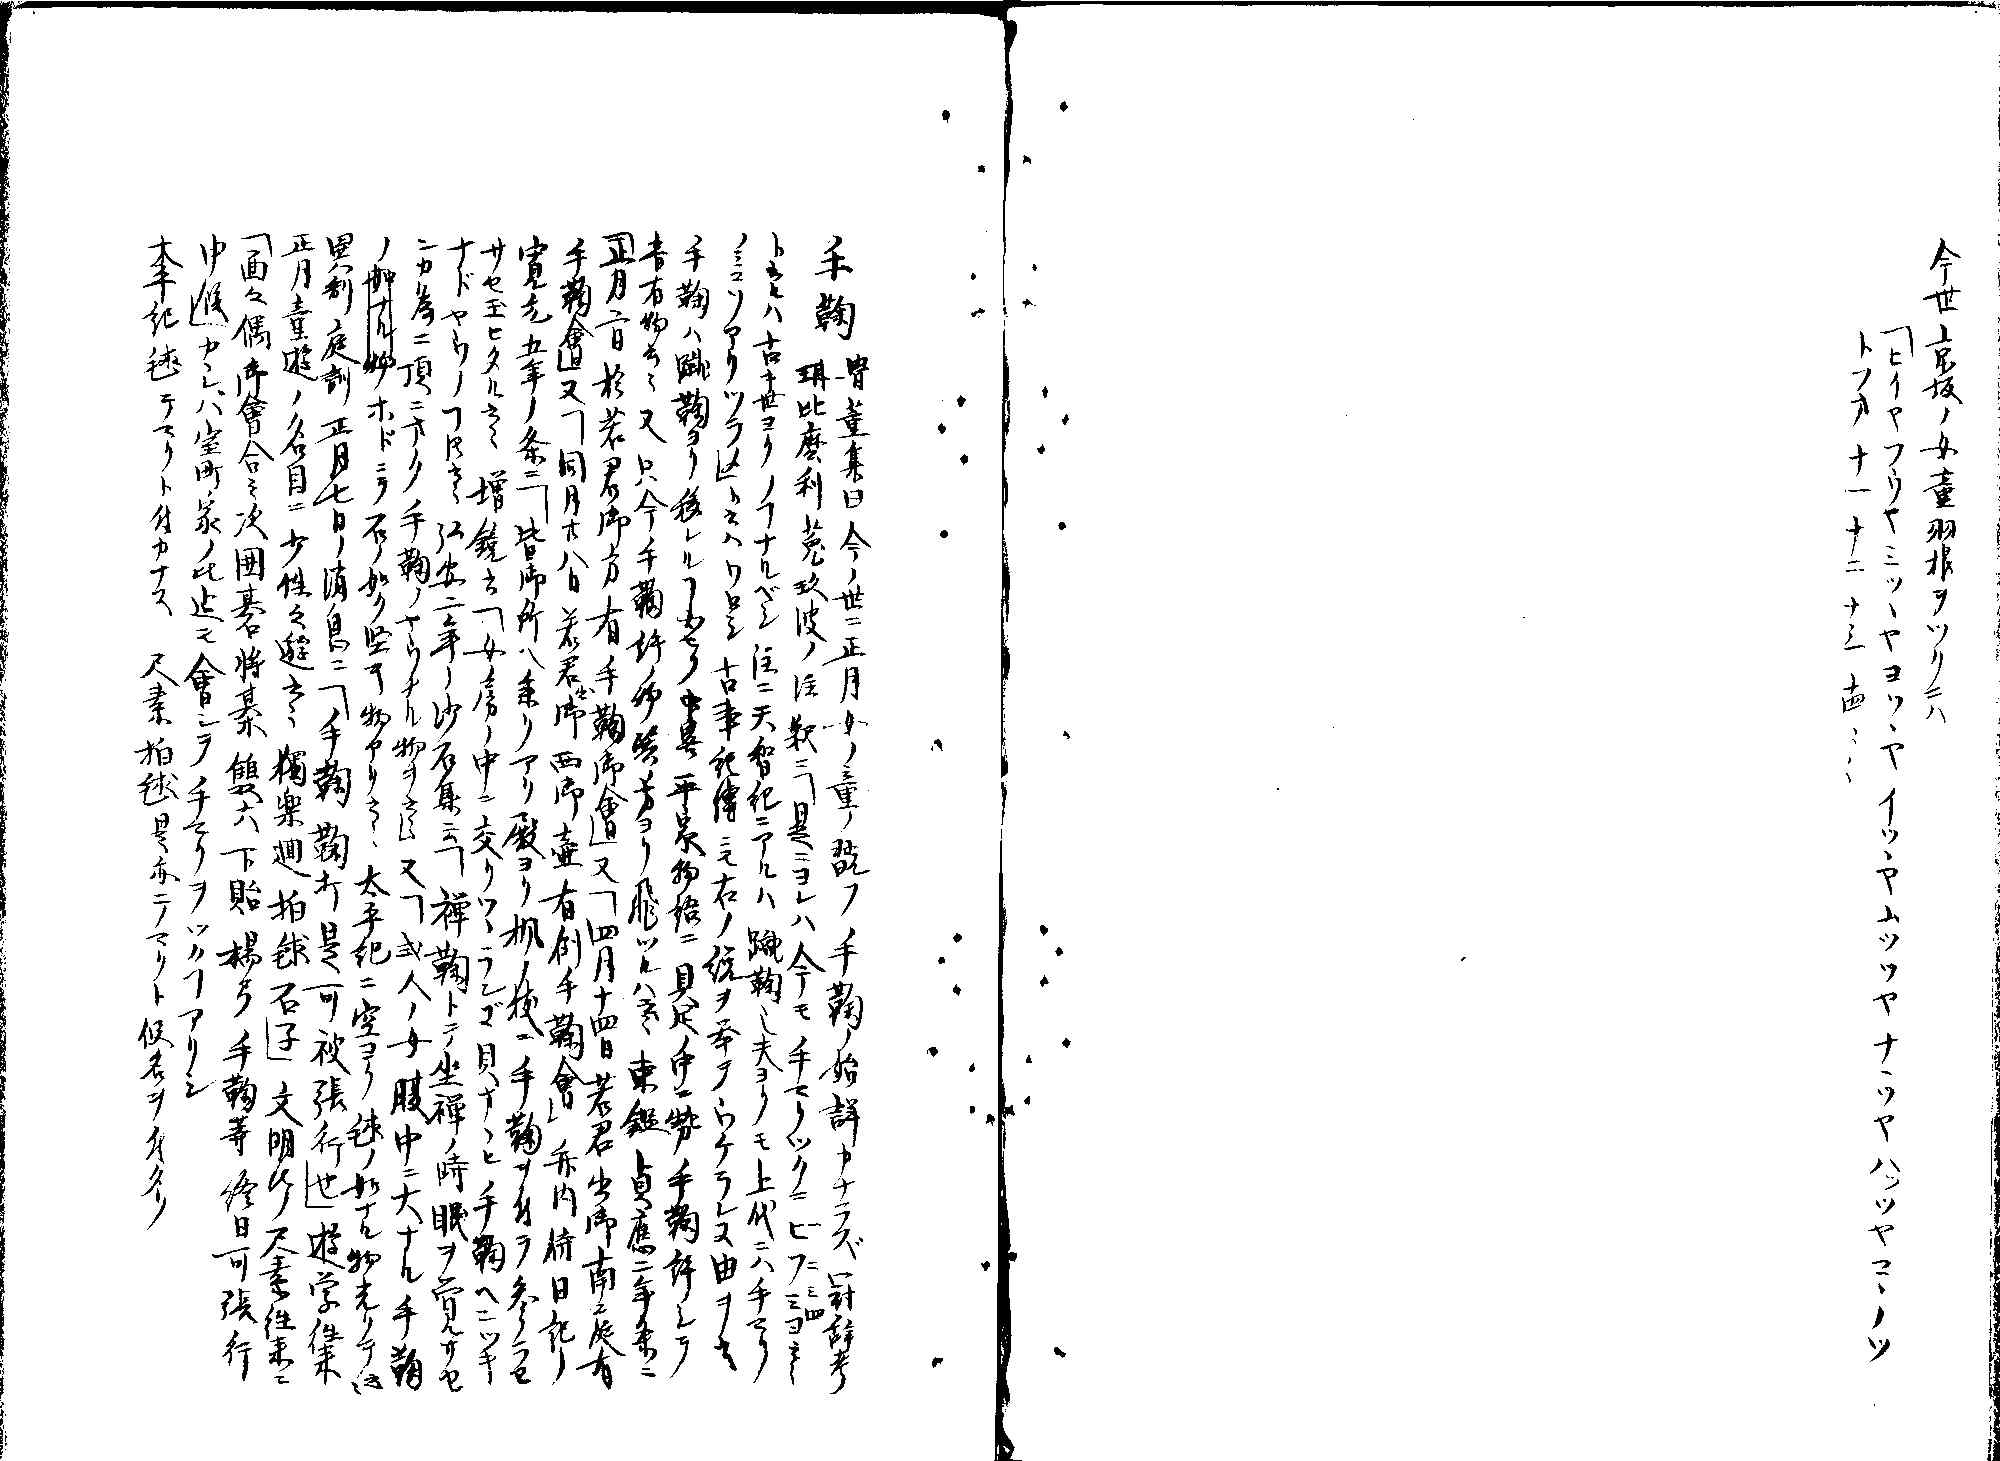 今世京坂ノ女童羽根ヲツクニハ
「ヒイヤフウヤミツヽヤヨツヽヤイツヽヤムツヽヤナヽツヤハツヤコヽノツ
トフヨ十一十二十三
手鞠
骨董集曰今ノ世ニ正月女ノ童ノ翫フ手鞠ノ始詳カナラズ冠辞考
玥比麼利莵玖波ノ注釈ニ「是ニヨレハ今モ手マリツクニヒフミヨ
トハ古キ世ヨリノフナルベシ注ニ天智紀ニアルハ蹴鞠也夫ヨリモ上代ニハ手マリ
ノミコソアリツラメトハワロシ古事記傳ニモ右ノ説ヲ挙テウケラレヌ由ヲ
手鞠ハ蹴鞠ヨリ移レルフナラン中畧平家物語ニ具足ノ中ニ勢手鞠許ニテ
青有物云々又只今手鞠許ノ物巽方ヨリ飛ツルハ云々東鑑貞應二年条ニ
「正月二日於若君御方有手鞠御會」又「四月十四日若君出御南庭有
手鞠會」又「同月廿八日若君出御西御壷有例手鞠會」弁内侍日記ノ
寛元五年ノ条ニ「皆御所ヘ参リアリ殿ヨリ桃ノ枝ニ手鞠ヲ付ラ参ラセ
サセ玉ヒタル云々増鏡云「女房ノ中ニ交リツヽランゴ貝ナヽヒ手鞠ヘンツキ
ナドヤウノフ云々弘安二年ノ沙石集云「禅鞠トテ坐禅ノ時眠ヲ覚サセ
ンカ為ニ頂ニオク手鞠ノヤウナル物ヲ云又「或人ノ女腹中ニ大ナル手鞠
ノ如ナル物ホドニテ石ノ如ク堅キ物アリ云々太平記ニ空ヨリ毬ノ如ナル物光リテ
異制庭訓正月七日ノ消息ニ「手鞠鞠打是可被張行也」遊学往来
正月童遊ノ名目ニ少性之遊云々獨楽廻拍毬石子」文明比ノ尺素往来ニ
「面々偶御會合之次囲碁将棊雙六下貽楊弓手鞠等終日可張行
申候」カヽレバ室町家ノ比迄モ會シテ手マリヲツクフアリシ
本李記毬テマリト付カナス尺素拍毬是亦テマリト仮名ヲ付タリ